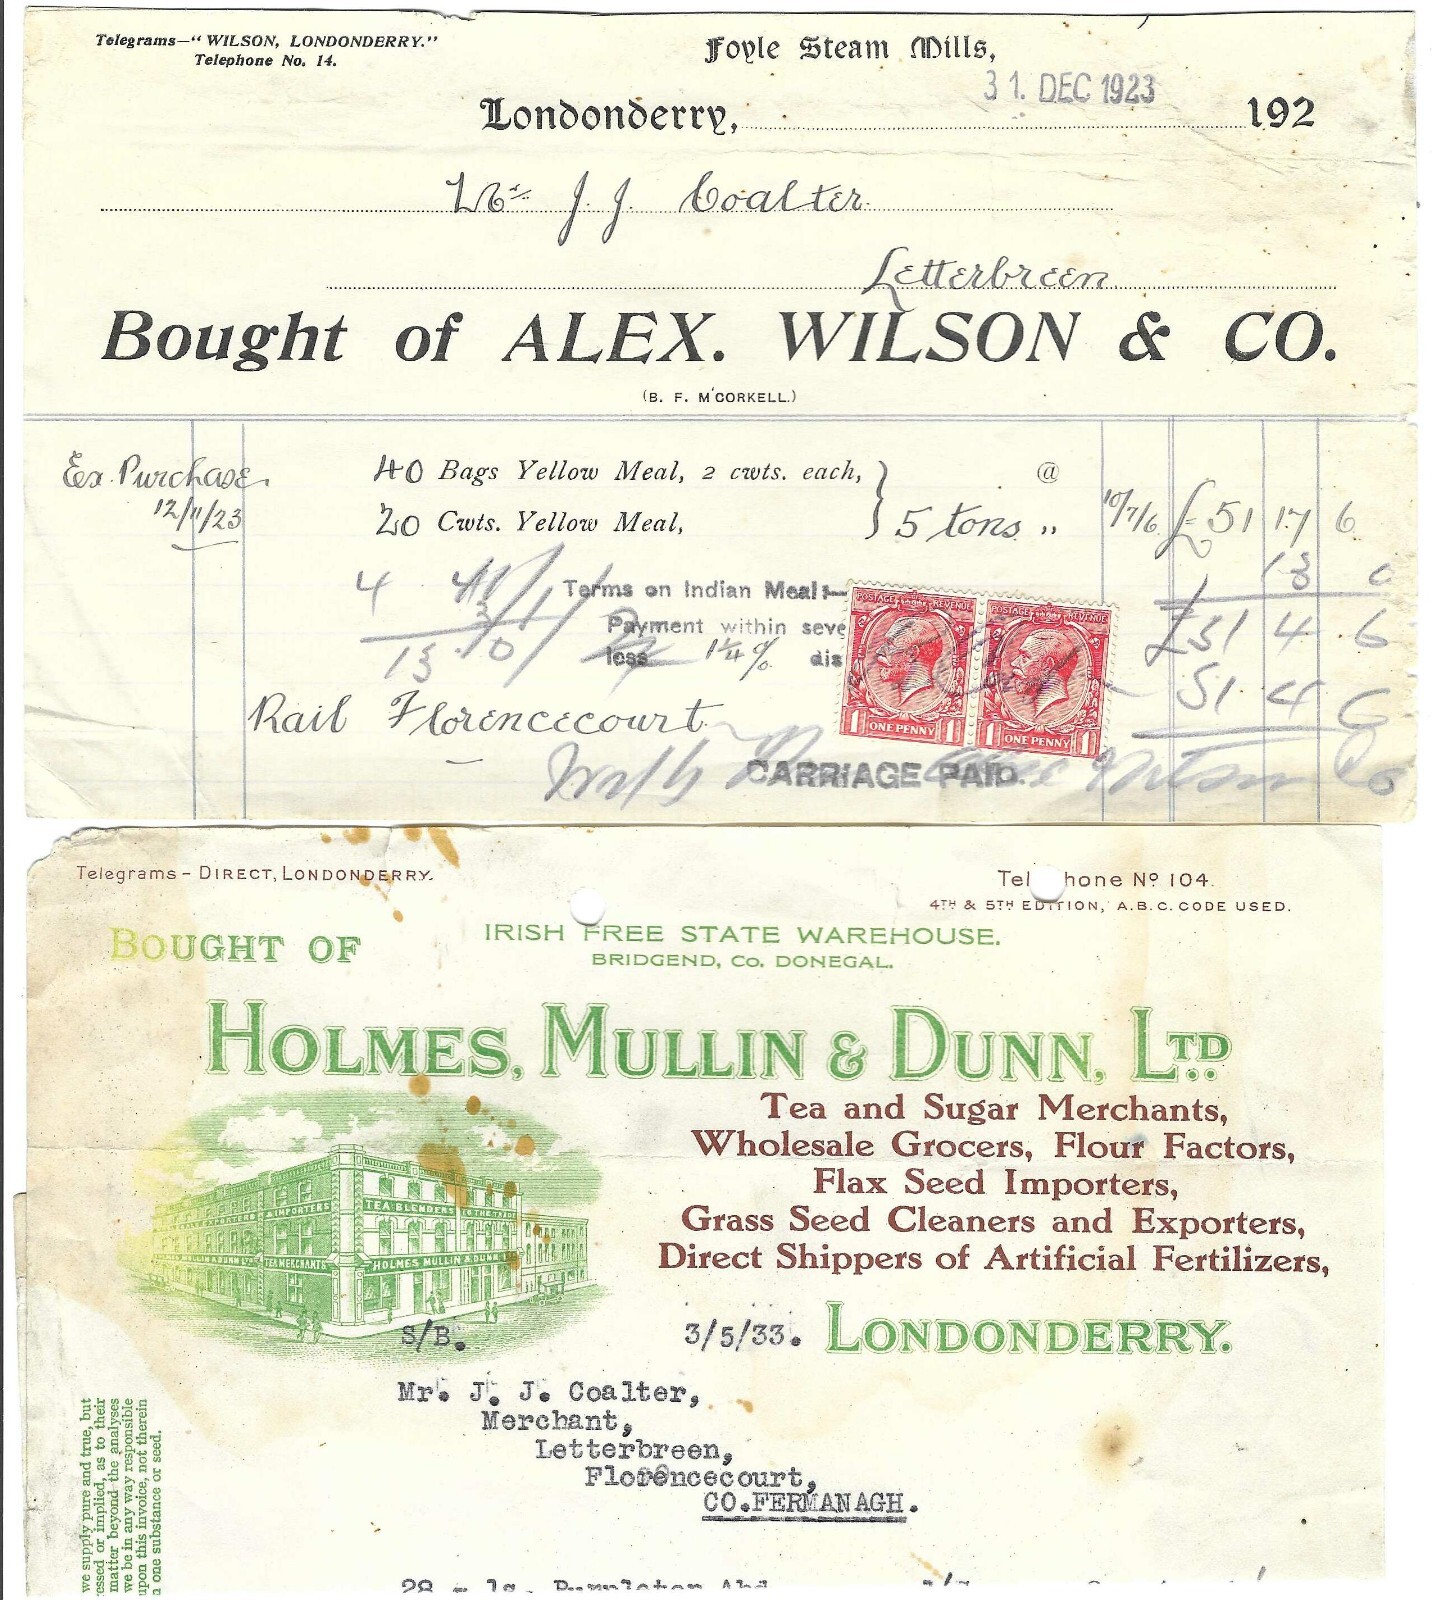 Telegrams—"WILSON, LONDONDERRY."
Telephone No. 14.
Foyle Steam Mills,
31. DEC 1923
Londonderry, 192
Mr J. J. Coalter
Letterbreen
Bought of ALEX. WILSON & CO.
(B. F. McCORKELL.)
Ex. Purchase 40 Bags Yellow Meal, 2 cwts. each, @
12/11/23 20 Cwts. Yellow Meal, 5 tons " 10/7/6 £51 17 6
13 0
Terms on Indian Meal:—
Payment within seve
less 1¼% dis
£51 4 6
51 4 6
POSTAGE REVENUE POSTAGE REVENUE
1 ONE PENNY 1 1 ONE PENNY 1
Rail Florencecourt
CARRIAGE PAID.
Telegrams - DIRECT, LONDONDERRY.
Tel hone No 104.
4TH & 5TH EDITION, A.B.C. CODE USED.
BOUGHT OF
IRISH FREE STATE WAREHOUSE.
BRIDGEND, Co. DONEGAL.
HOLMES, MULLIN & DUNN, LTD.
Tea and Sugar Merchants,
Wholesale Grocers, Flour Factors,
Flax Seed Importers,
Grass Seed Cleaners and Exporters,
Direct Shippers of Artificial Fertilizers,
& IMPORTERS TEA BLENDERS TO THE TRADE
TEA MERCHANTS HOLMES MULLIN & DUNN
S/B. 3/5/33. LONDONDERRY.
Mr. J. J. Coalter,
Merchant,
Letterbreen,
Florencecourt,
CO.FERMANAGH.
we supply pure and true, but
essed or implied, as to their
matter beyond the analyses
we be in any way responsible
upon this invoice, not therein
one substance or seed.